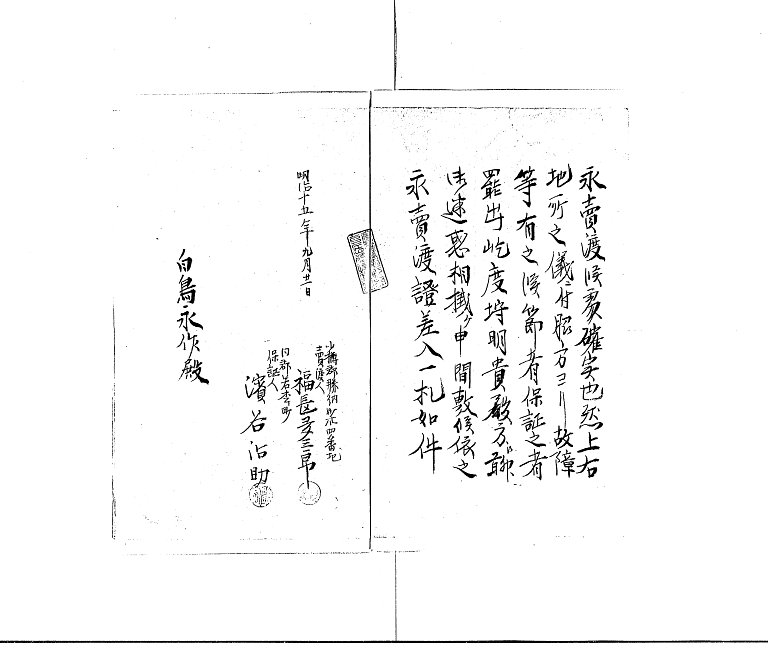 永賣渡候處確実也然上右
地所之儀ニ付脇方ヨリ故障
等有之候節者保証之者
罷出屹度埒明貴殿方江聊
御迷惑相掛ケ申間敷候依之
永賣渡證差入一札如件
明治十五年九月廿一日
小樽郡勝納町拾四番地
賣渡人
福長多三郎
同郡若松町
保証人
濱谷治助
白鳥永作殿